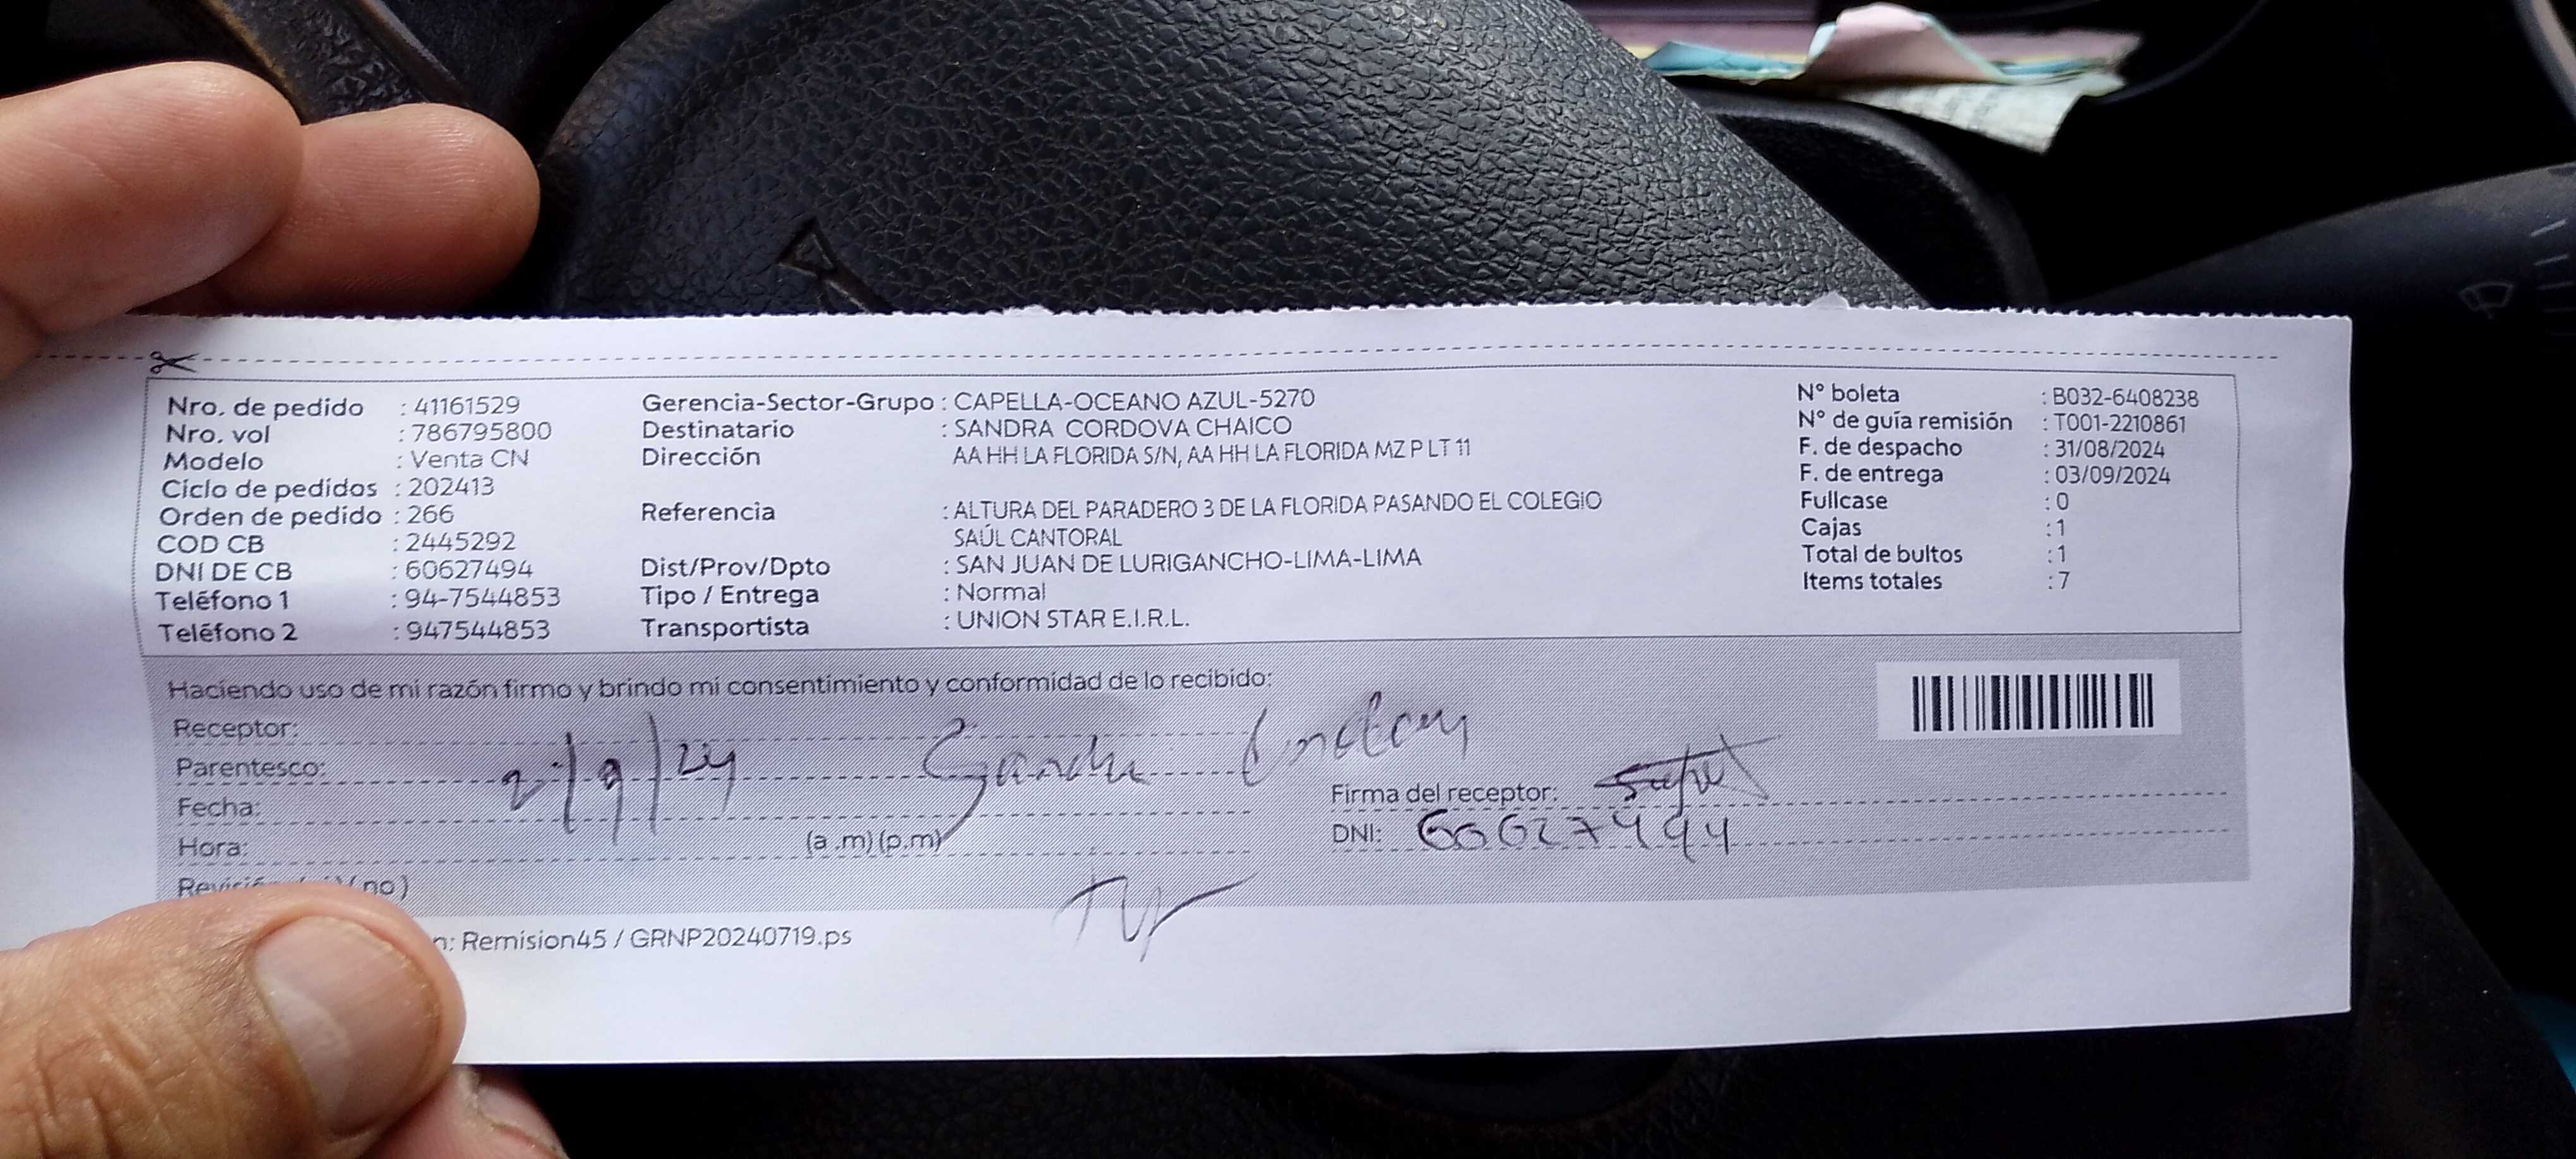 Nro. de pedido : 41161529
Nro. vol : 786795800
Modelo : Venta CN
Ciclo de pedidos : 202413
Orden de pedido : 266
COD CB : 2445292
DNI DE CB : 60627494
Teléfono 1 : 94-7544853
Teléfono 2 : 947544853
Gerencia-Sector-Grupo : CAPELLA-OCEANO AZUL-5270
Destinatario : SANDRA CORDOVA CHAICO
Dirección AA HH LA FLORIDA S/N, AA HH LA FLORIDA MZ P LT 11
Referencia : ALTURA DEL PARADERO 3 DE LA FLORIDA PASANDO EL COLEGIO
SAÚL CANTORAL
Dist/Prov/Dpto : SAN JUAN DE LURIGANCHO-LIMA-LIMA
Tipo / Entrega : Normal
Transportista : UNION STAR E.I.R.L.
N° boleta : B032-6408238
N° de guía remisión : T001-2210861
F. de despacho : 31/08/2024
F. de entrega : 03/09/2024
Fullcase : 0
Cajas : 1
Total de bultos : 1
Items totales : 7
Haciendo uso de mi razón firmo y brindo mi consentimiento y conformidad de lo recibido:
Receptor:
Parentesco: 2/9/24 Sandra
Fecha:
Hora: (a .m) (p.m)
no)
Firma del receptor:
DNI: 60627494
n: Remision45 / GRNP20240719.ps